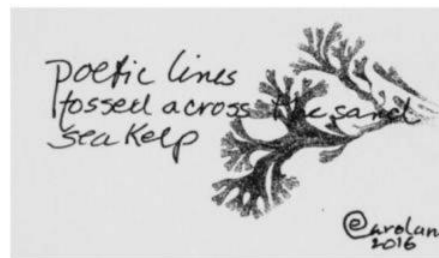 poetic lines
tossed across the sand
sea kelp
©arolan
2016